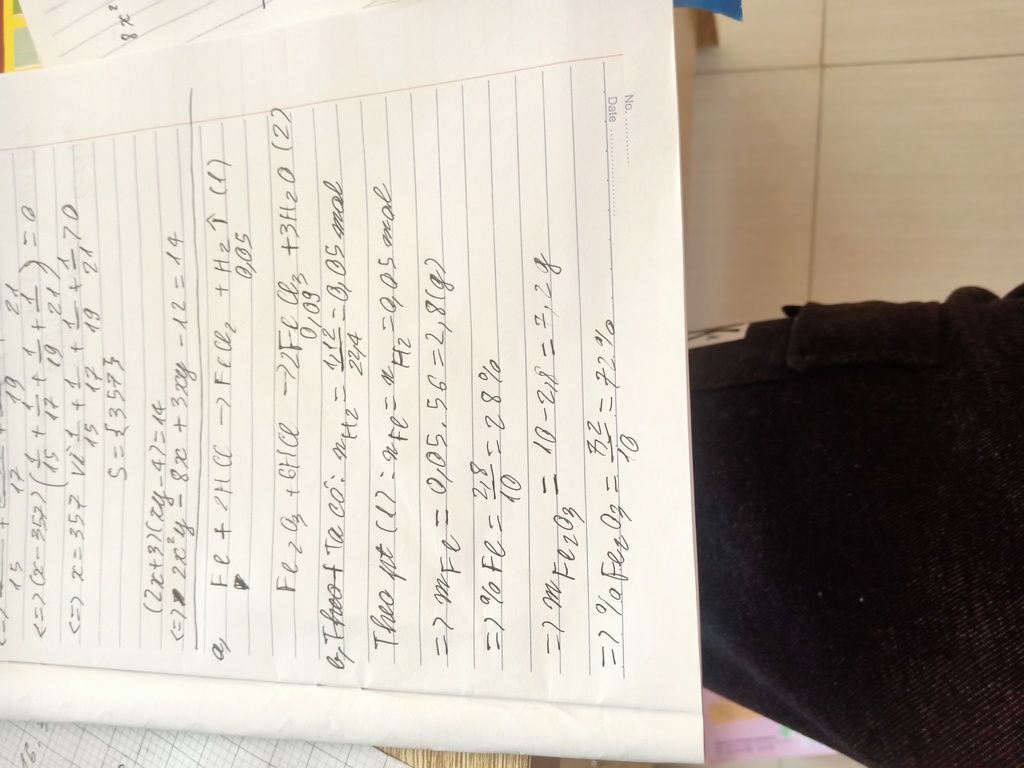 8x²
No. ............
Date ......................
15 17 19 21
<=> (x-357)(1/15 + 1/17 + 1/19 + 1/21) = 0
<=> x = 357 vì 1/15 + 1/17 + 1/19 + 1/21 > 0
S = {357}
(2x+3)(xy-4)=14
<=> 2x²y - 8x + 3xy - 12 = 14
a, Fe + 2HCl -> FeCl2 + H2↑ (1)
0,05
Fe2O3 + 6HCl -> 2FeCl3 + 3H2O (2)
0,09
b, Theo + Ta có: nH2 = 1,12/22,4 = 0,05 mol
Theo pt (1): nFe = nH2 = 0,05 mol
=> mFe = 0,05.56 = 2,8(g)
=> % Fe = 2,8/10 = 28%
=> mFe2O3 = 10 - 2,8 = 7,2 g
=> % Fe2O3 = 7,2/10 = 72%
16